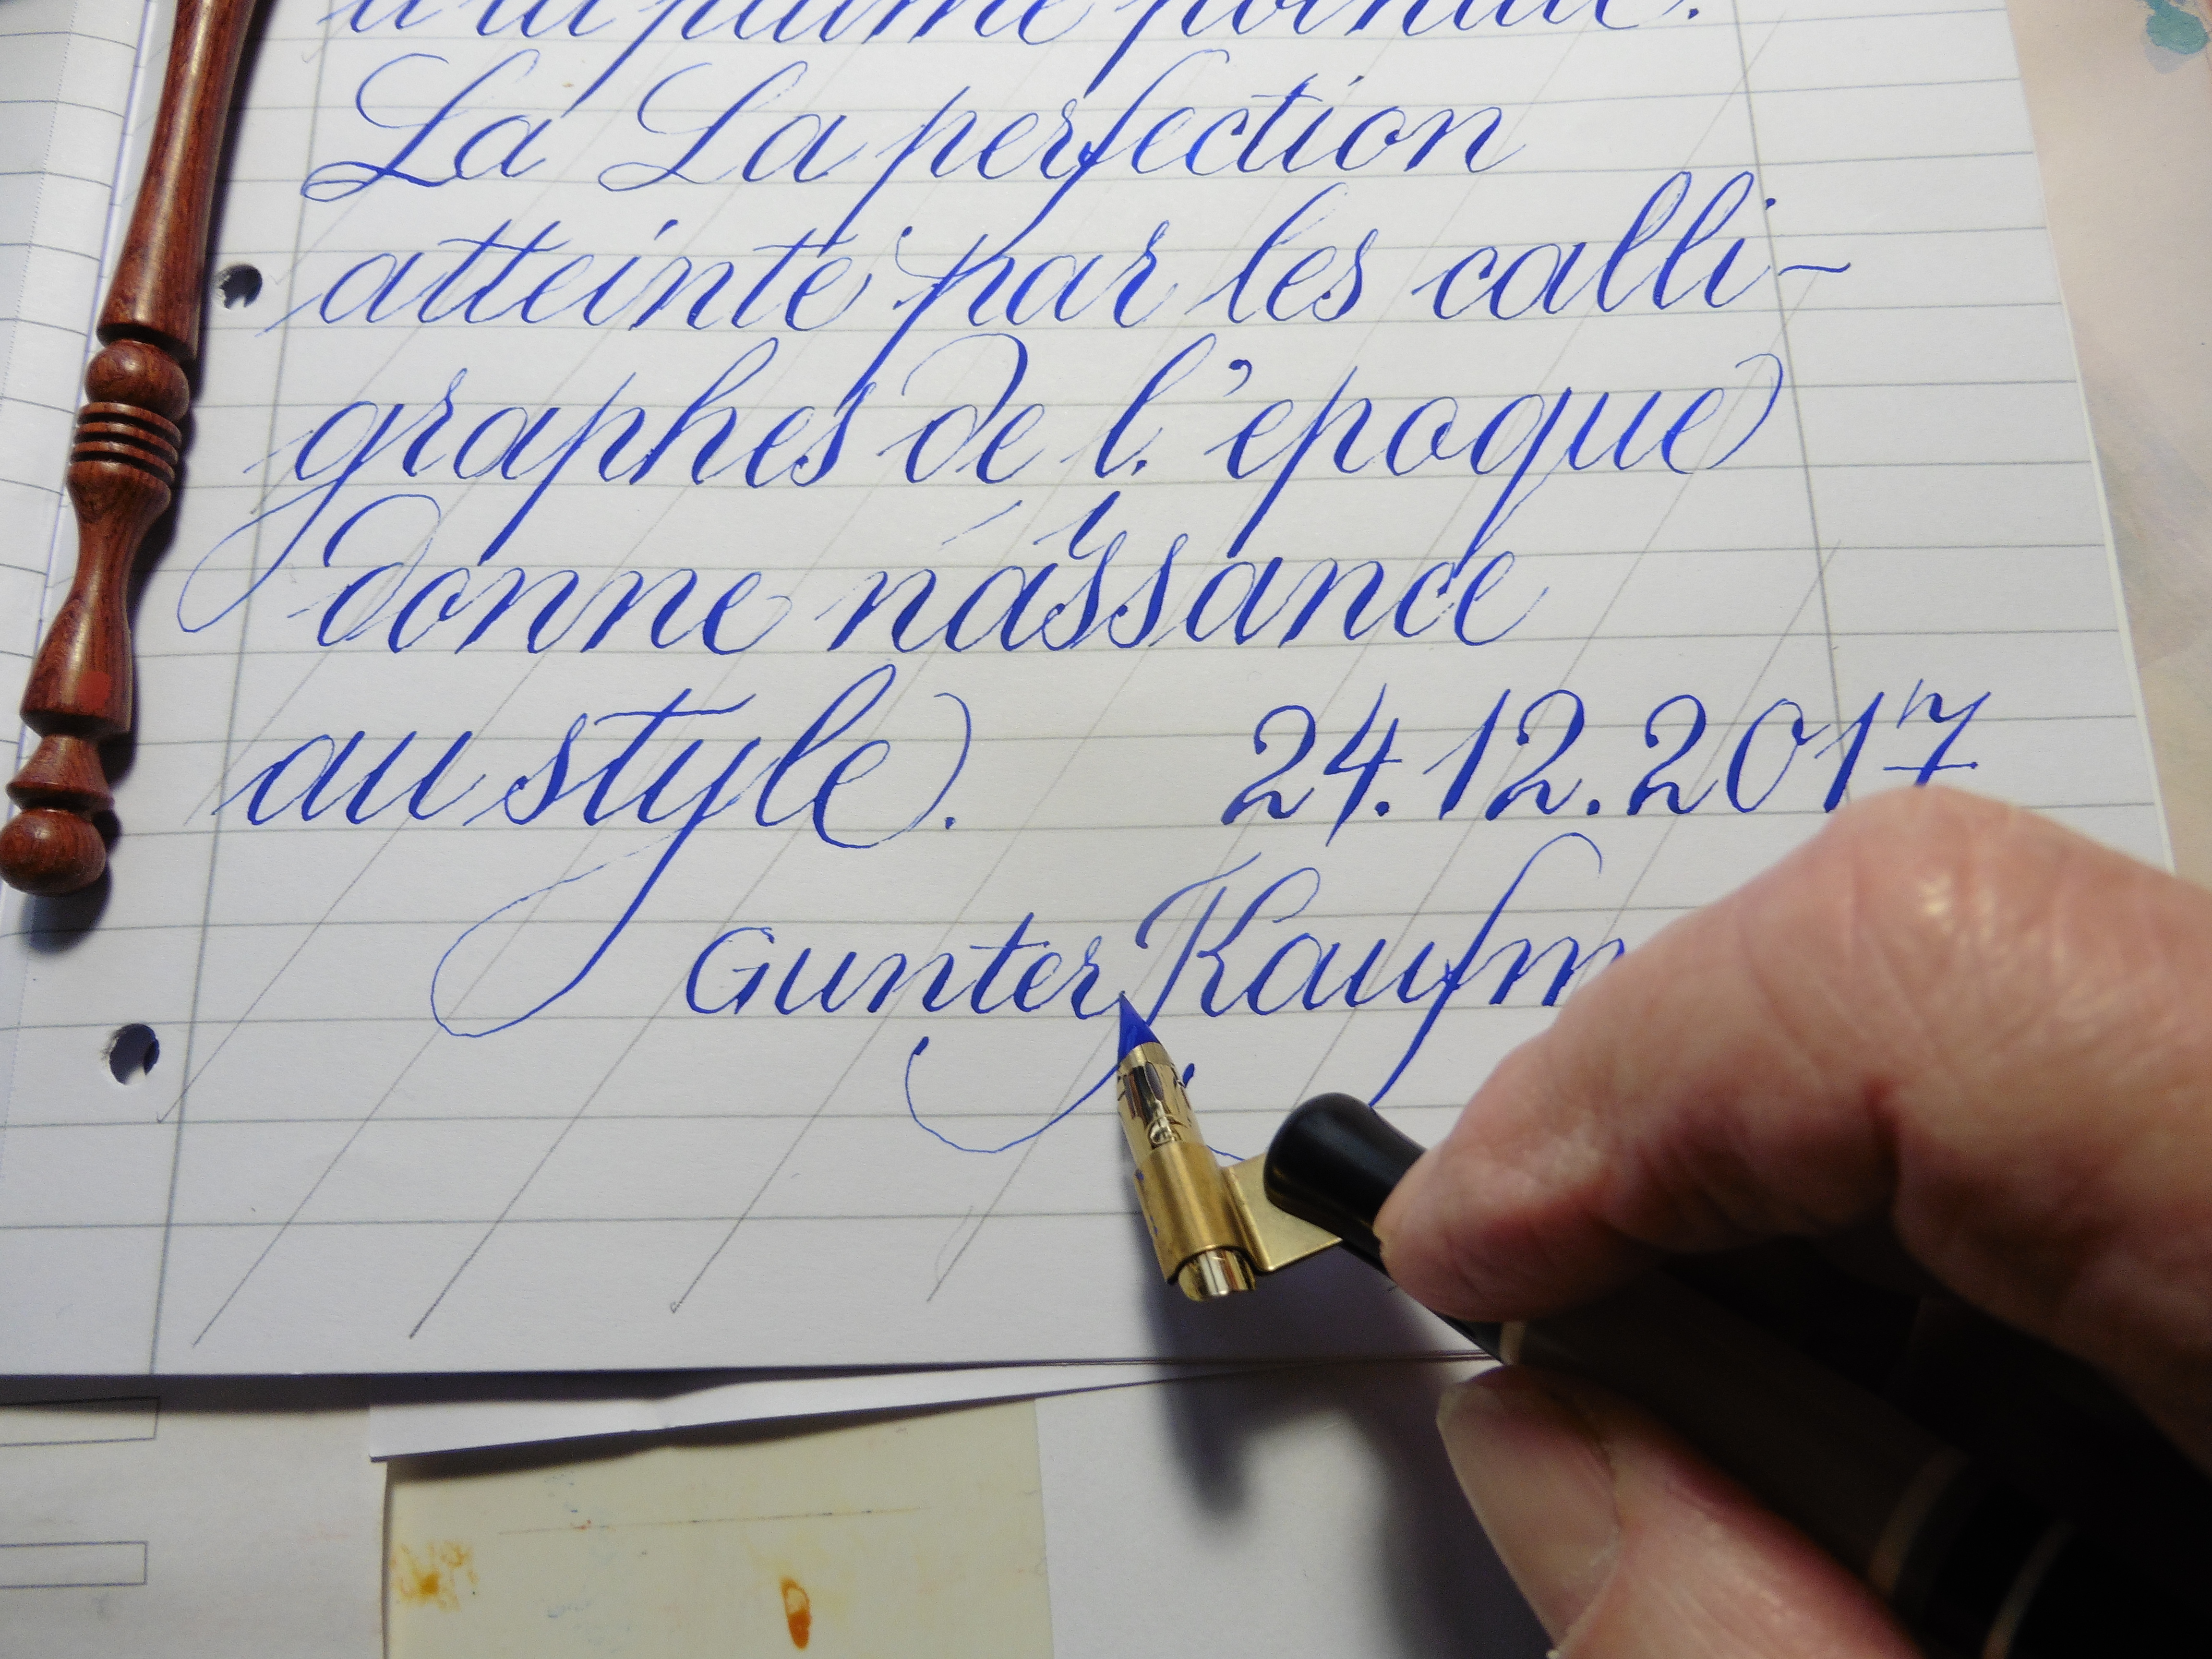 a la plume pointue.
La La perfection
atteinte par les calli-
graphes de l'epoque
donne naissance
au style. 24.12.2017
Gunter Kaufm